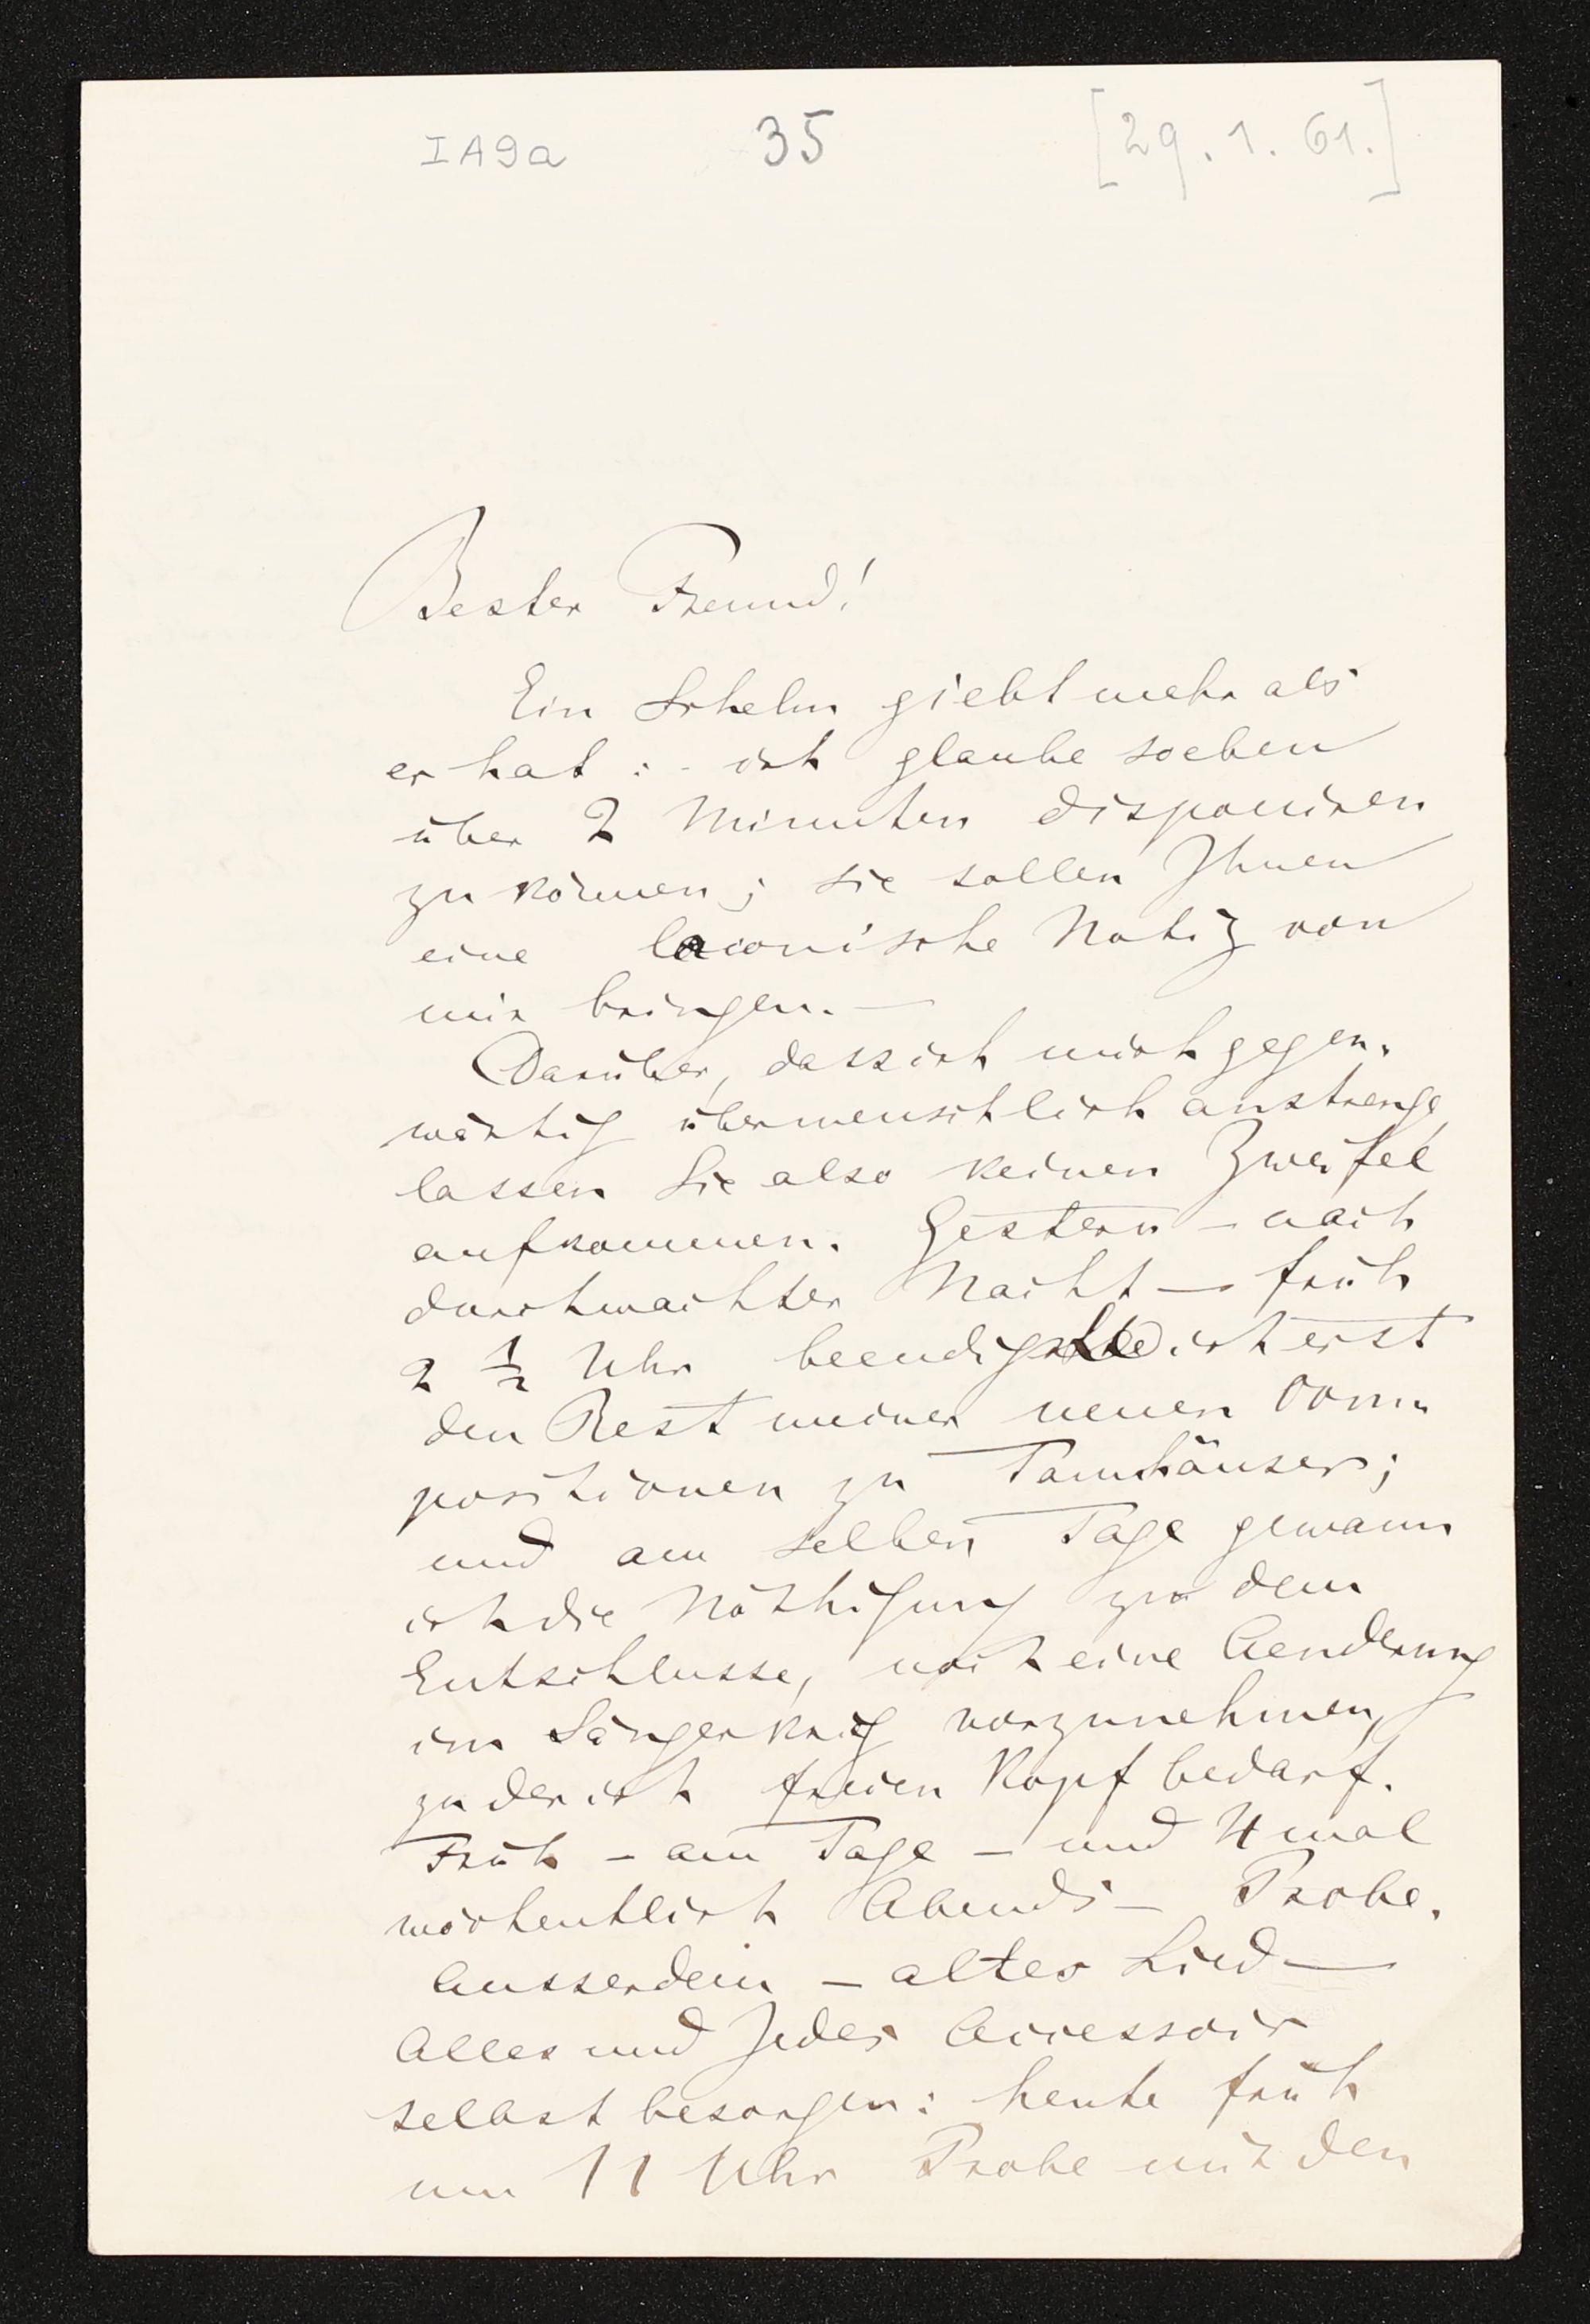 IA9a 35 [29.1.61.]
Bester Freund!
Ein Schelm giebt mehr als
er hat: - ich glaube soeben
über 2 Minuten disponiren
zu können; sie sollen Ihnen
eine laconische Notiz von
mir bringen. —
Darüber, dass ich mich gegen-
wärtig übermenschlich anstrenge,
lassen Sie also keinen Zweifel
aufkommen. Gestern — nach
durchwachter Nacht — früh
2 ½ Uhr beendigte ich erst
den Rest meiner neuen Com-
positionen zu Tannhäuser;
und am selben Tage gewann
ich die Nöthigung zu dem
Entschlusse, noch eine Aenderung
im Sängerkrieg vorzunehmen,
zu der ich freien Kopf bedarf.
Früh — am Tage — und 4 mal
wöchentlich Abends — Probe.
Ausserdem — altes Lied —
Alles und Jedes Accessoir
selbst besorgen: heute früh
um 11 Uhr Probe mit den